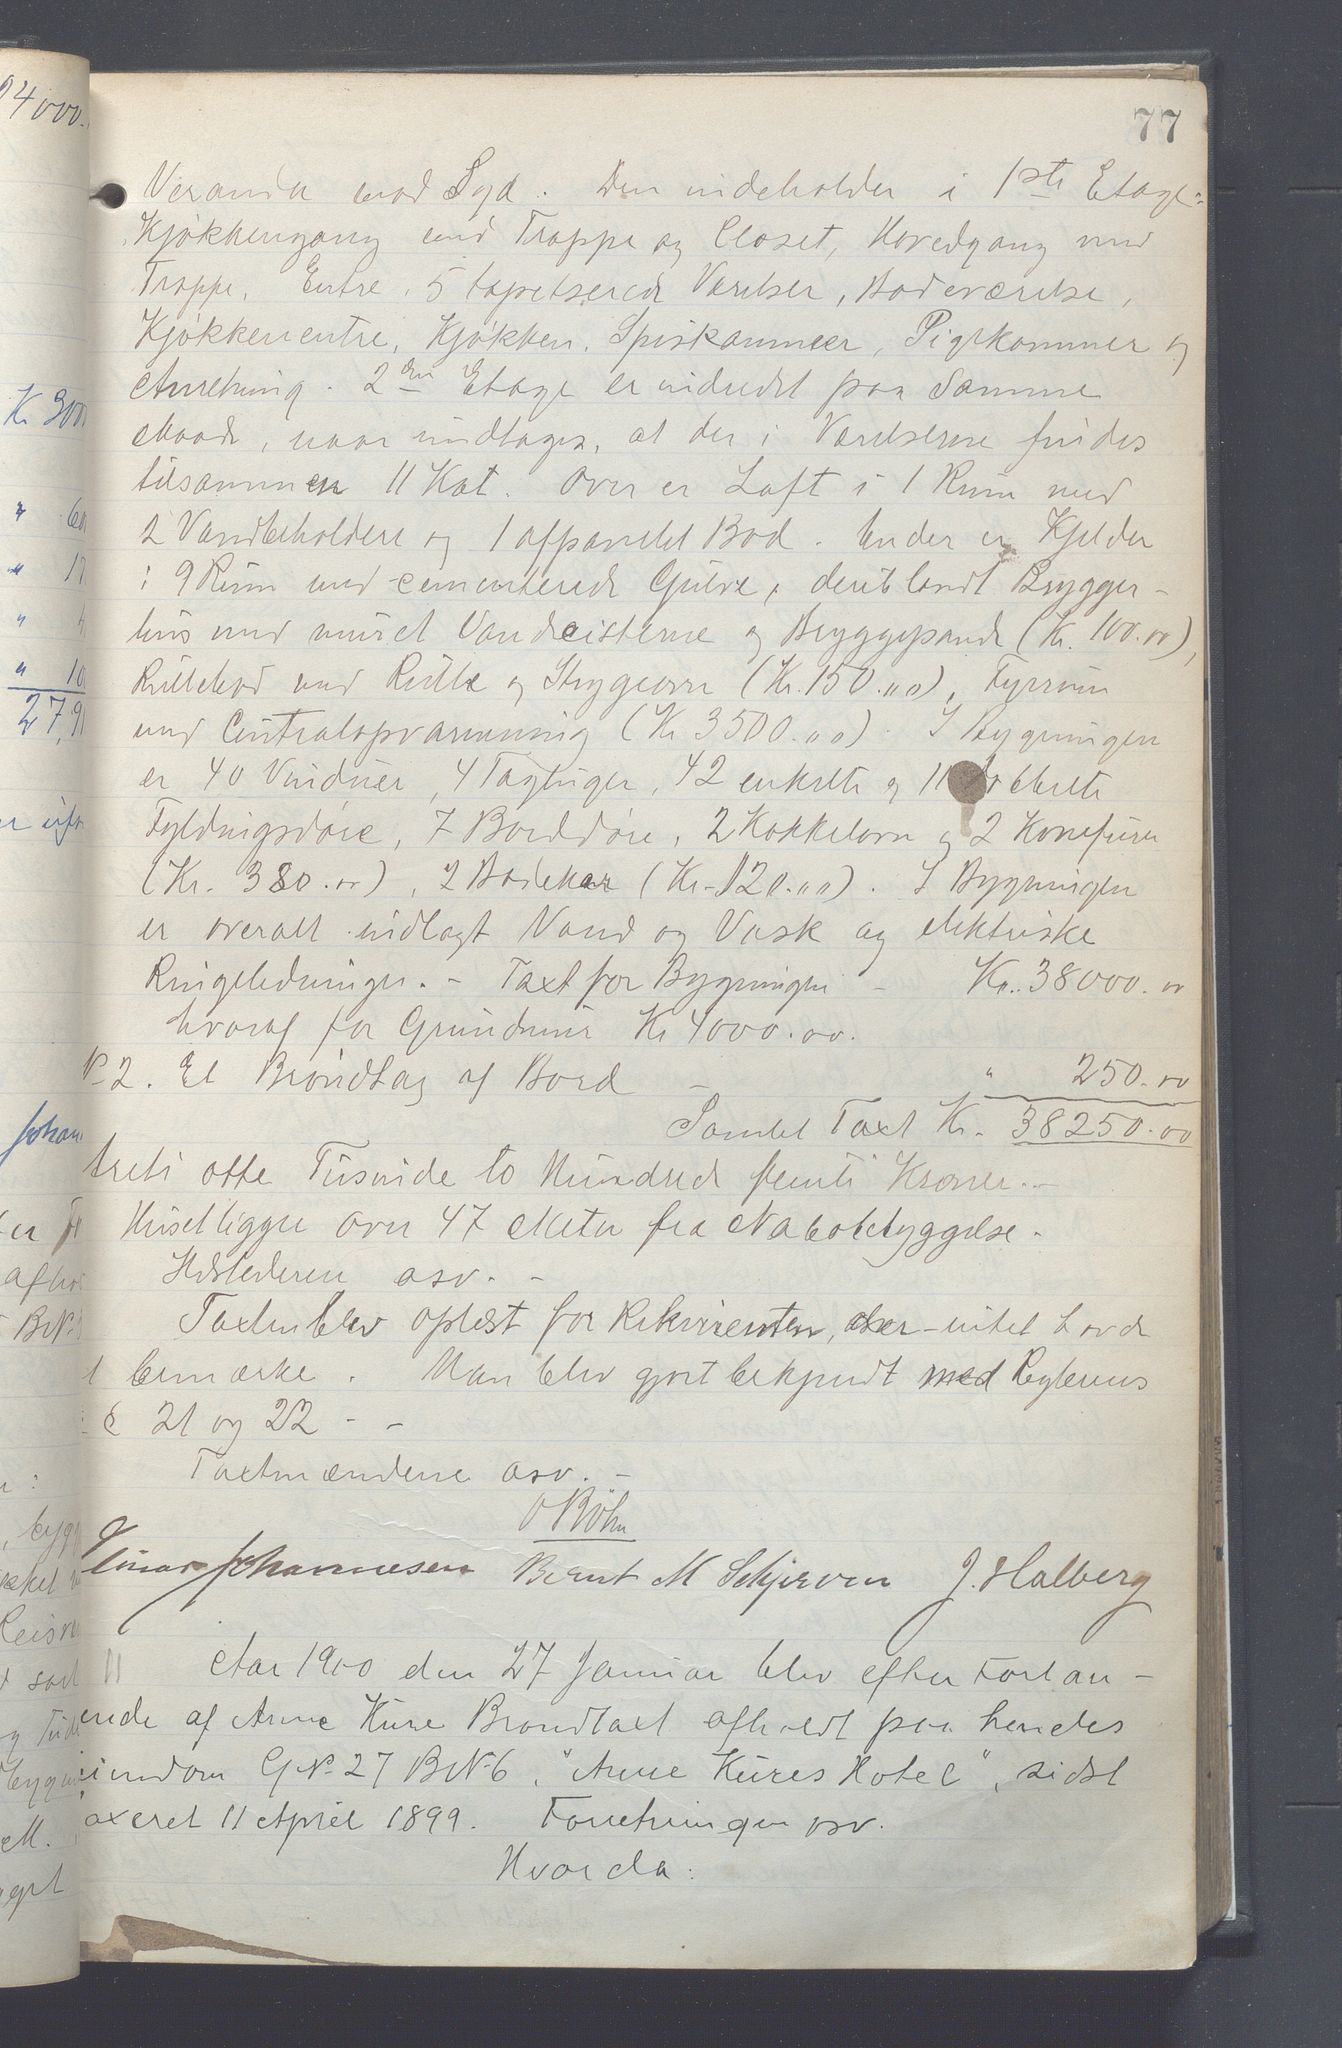 77
Veranda mod Syd. Den indeholder i 1ste Etage:
Kjøkkengang med Trappe og Closet, Hovedgang med
Trappe, Entre, 5 tapetserede Værelser, Badeværelse,
Kjøkkenentre, Kjøkken, Spiskammer, Pigekammer og
Anretning. 2den Etage er indredet paa samme
Maade, naar undtages, at der i Værelserne findes
tilsammen 11 Kot. Over er Loft i 1 Rum med
2 Vandbeholdere og 1 afpanelet Bod. Under er Kjelder
i 9 Rum med cementerede Gulve, deriblandt Brygger-
hus med muret Vandcisterne og Bryggepande (Kr. 100.00),
Rullebod med Rulle og Strygeovn (Kr. 150.00), Fyrrum
med Centralopvarmning (Kr 3500.00). I Bygningen
er 40 Vinduer, 4 Tagluger, 42 enkelte og 11 dobbelte
Fyldingsdøre, 7 Borddøre, 2 Kakkelovn og 2 Komfurer
(Kr. 380.00), 2 Badekar (Kr. 120.00). I Bygningen
er overalt indlagt Vand og Vask og elektriske
Ringeledninger. - Taxt for Bygningen - Kr. 38000.00
hvoraf for Grundmur Kr 4000.00.
N-2. Et Brøndtag af Bord - " 250.00
Samlet Taxt Kr. 38250.00
treti otte Tusinde to Hundrede femti Kroner.-
Huset ligger over 47 Meter fra Nabobebyggelse.
Hdslederen osv. -
Taxten blev oplæst for Rekvirenten, der intet havde
t bemærke. Han blev gjort bekjendt med Reglernes
21 og 22 - -
Taxtmændene osv. -
O Böhn
Einar Johannesen Bernt M Schjerven J. Halberg
11 Aar 1900 den 27 Januar blev efter Forlan-
ende af Anne Kure Brandtaxt afholdt paa hendes
iendom GN-27 BN-6, "Anne Kures Hotel", sidst
axeret 11 April 1899. Forretningen osv.
Hvorda: